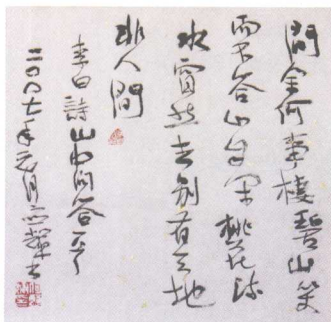 問余何事棲碧山笑
而不答心自闲桃花流
水窅然去别有天地
非人間
李白詩山中问答一首
二〇〇七年元月